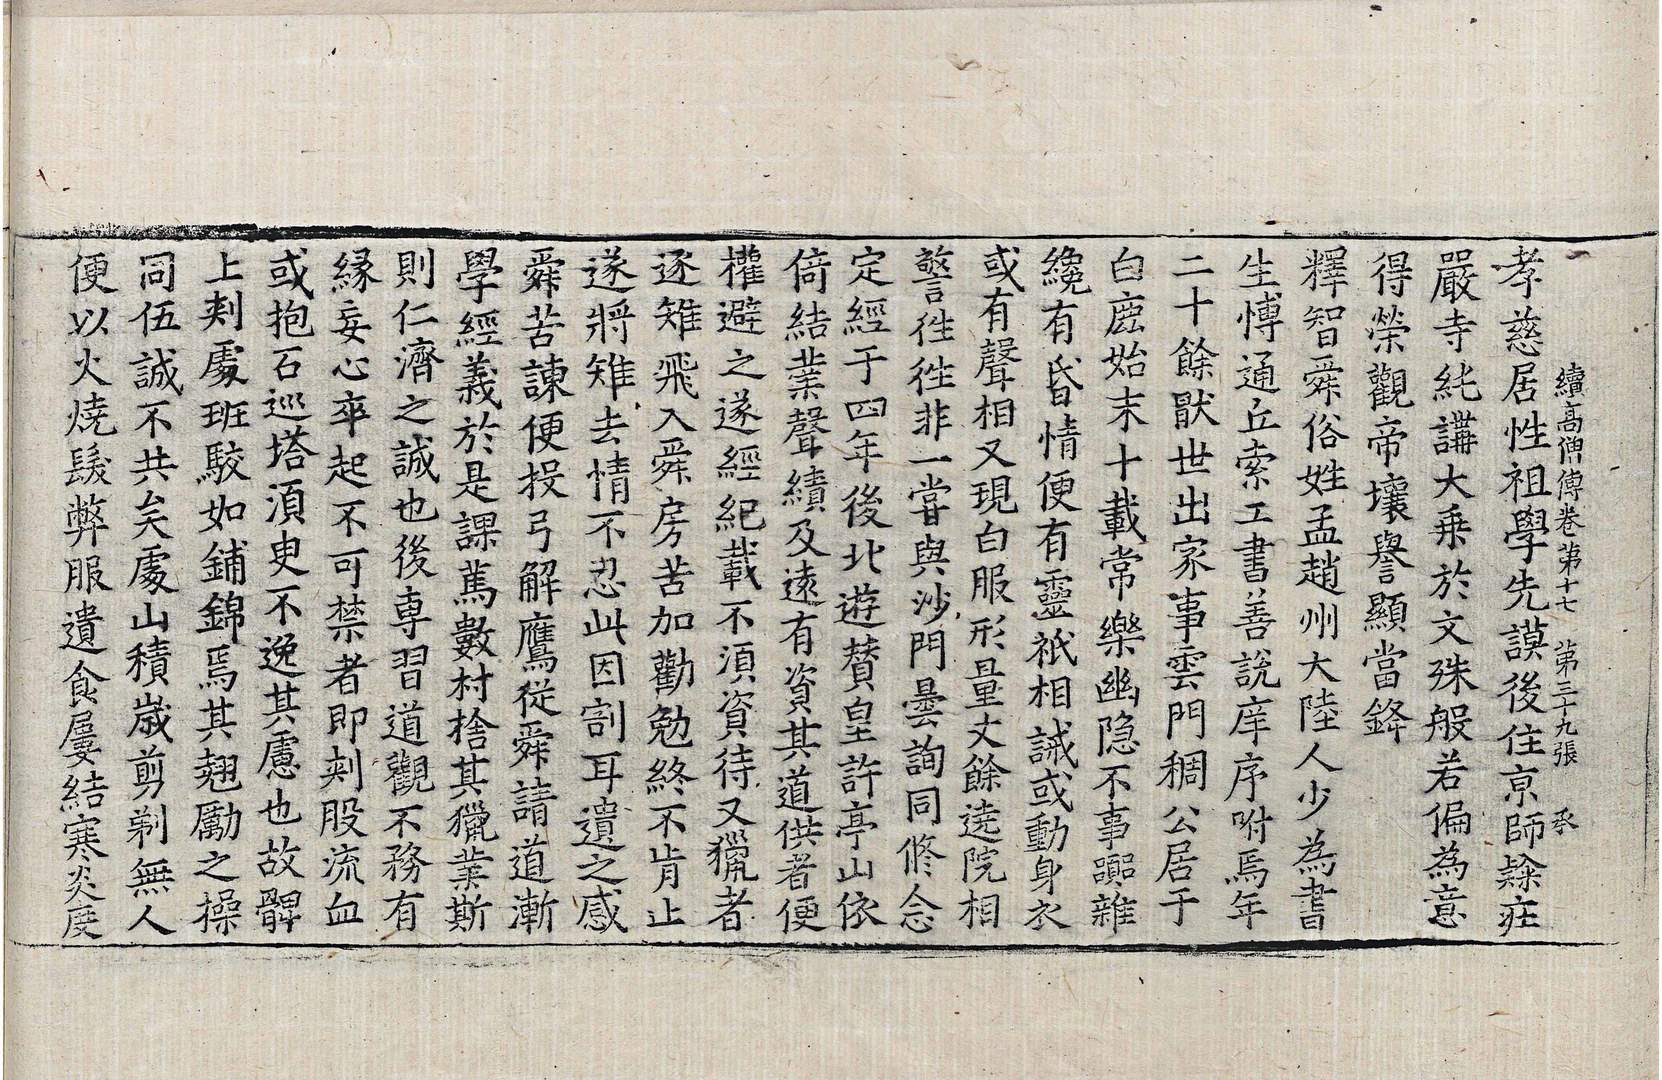 續高僧傳卷第十七　第三十九張　承
孝慈居性祖學先謨後住京師緣疰
嚴寺純講大乗於文殊般若偏為意
得榮觀帝壤譽顯當鋒
釋智舜俗姓孟趙州大陸人少為書
生博通丘索工書善說庠序附焉年
二十餘猒世出家事雲門稠公居于
白鹿始末十載常樂幽隱不事嚻雜
纔有昏情便有靈祇相誡或動身衣
或有聲相又現白服形量丈餘遶院相
警徃徃非一嘗與沙門曇詢同修念
定經于四年後北遊賛皇許亭山依
倚結業聲績及遠有資其道供者便
權避之遂經紀載不須資待又獵者
逐雉飛入舜房苦加勸勉終不肯止
遂將雉去情不忍此因割耳遺之感
舜苦諫便投弓解鷹從舜請道漸
學經義於是課篤數村捨其獵業斯
則仁濟之誠也後専習道觀不務有
縁妄心卒起不可禁者即刾股流血
或抱石巡塔須臾不逸其慮也故髀
上刾處班駮如鋪錦焉其翹勵之操
同伍誠不共矣處山積歲剪剃無人
便以火燒髮弊服遺食屢結寒炎度